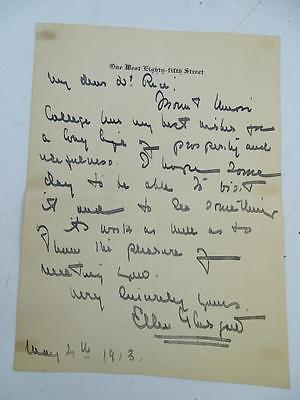 One West Eighty-fifth Street
My dear Dr. Rice:
Mount Union
College has my best wishes for
a long life of prosperity and
usefulness. I hope some
day to be able to visit
it and to see something
of its work as well as to
have the pleasure of
meeting you.
Very sincerely yours
Ellen Glasgow
May 4th 1913.